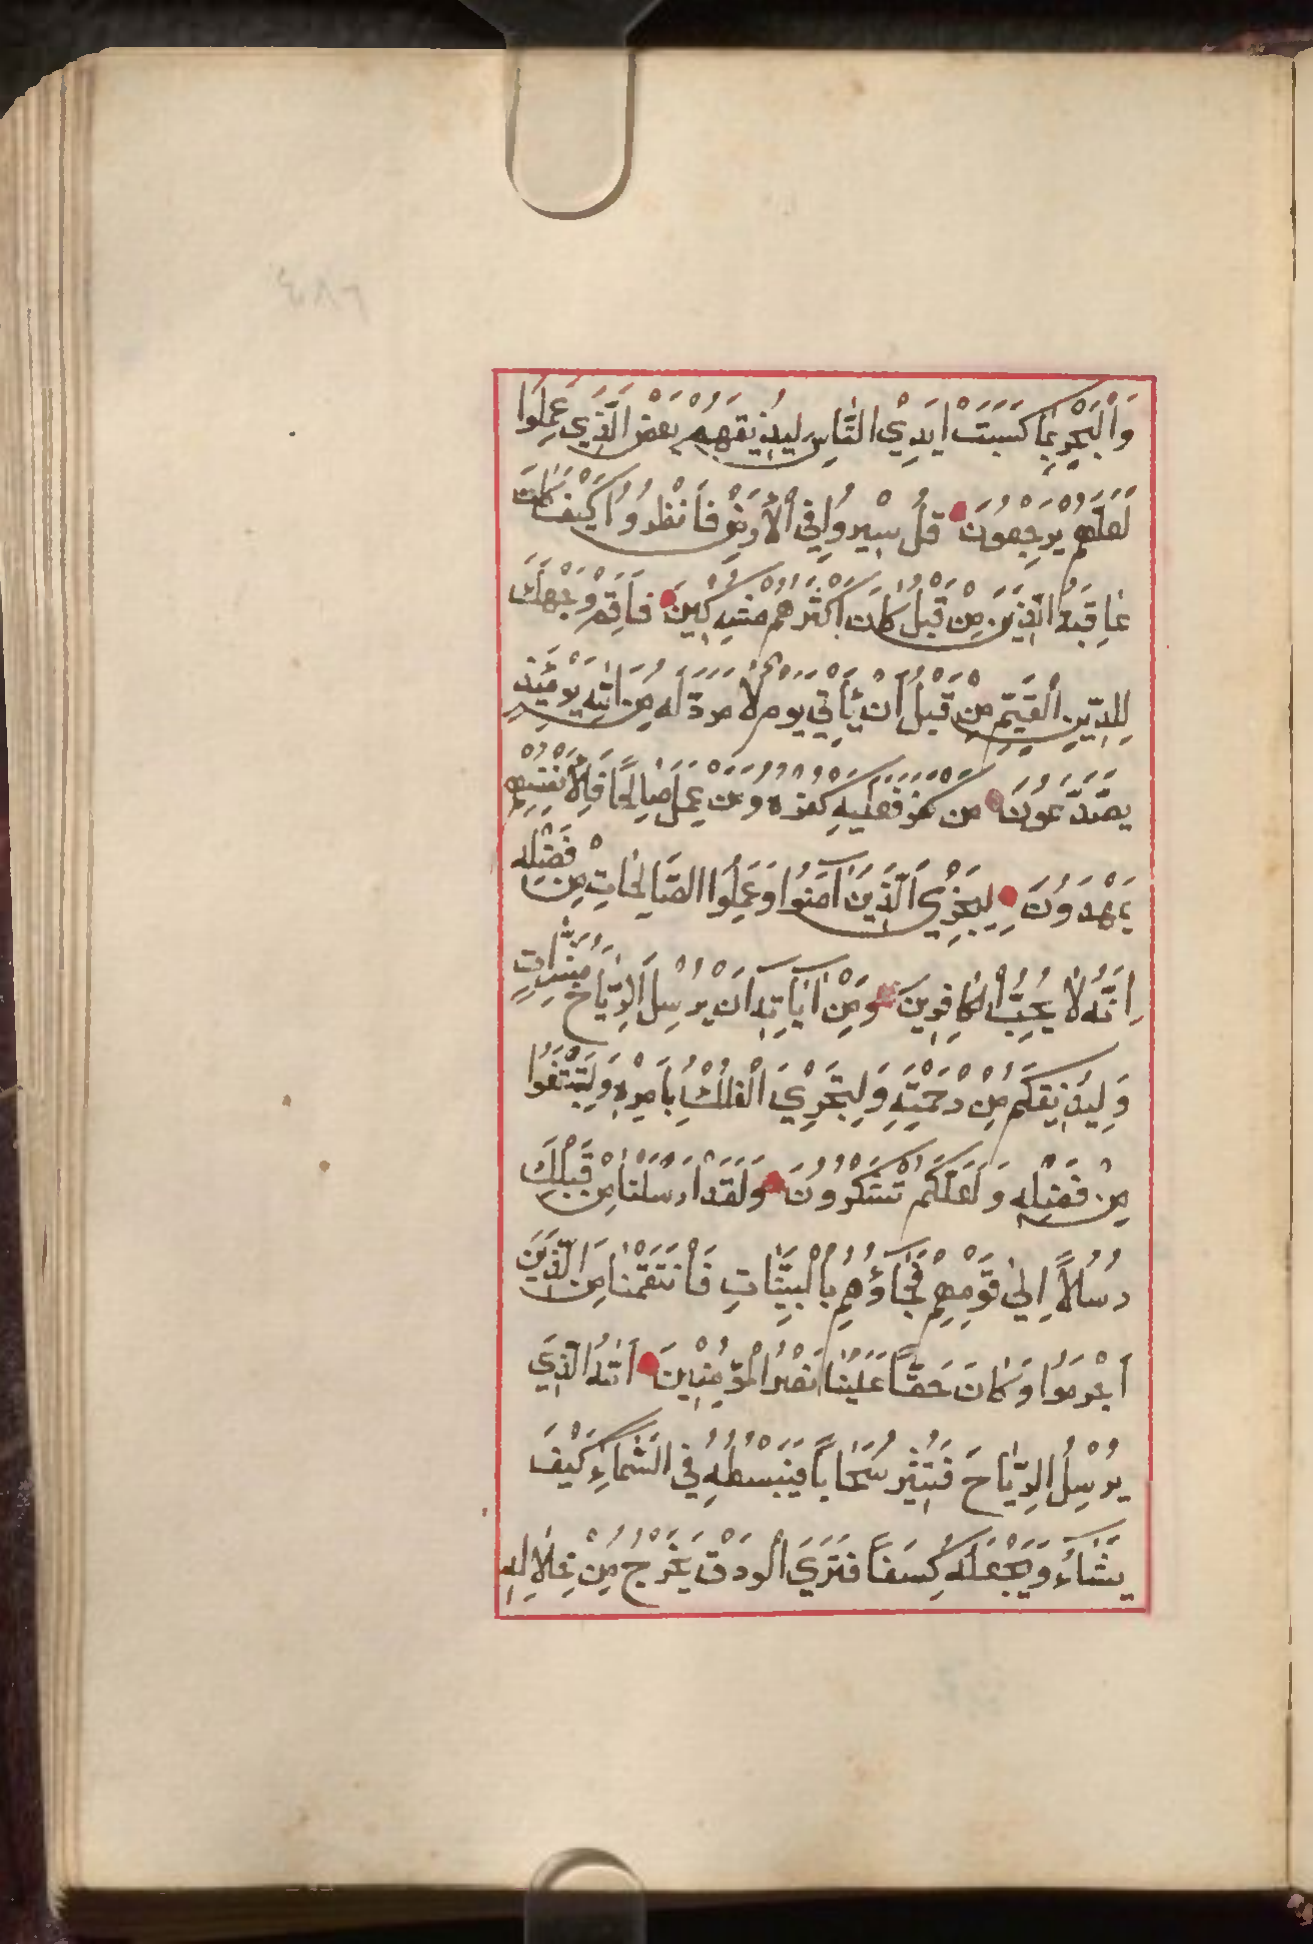 وَالْبَحْرِ بِمَا كَسَبَتْ اَيْدِي النَّاسِ لِيُذِيقَهُمْ بَعْضَ الَّذِي عَمِلُوا
لَعَلَّهُمْ يَرْجِعُونَ قُلْ سِيْرُوا فِي الْأَرْضِ فَانْظُرُوا كَيْفَ كَانَ
عَاقِبَةُ الَّذِينَ مِنْ قَبْلُ كَانَ اَكْثَرُهُمْ مُشْرِكِينَ فَاَقِمْ وَجْهَكَ
لِلدِّينِ الْقَيِّمِ مِنْ قَبْلِ اَنْ يَأْتِيَ يَوْمٌ لَا مَرَدَّ لَهُ مِنَ اللهِ يَوْمَئِذٍ
يَصَّدَّعُونَ مَنْ كَفَرَ فَعَلَيْهِ كُفْرُهُ وَمَنْ عَمِلَ صَالِحًا فَلِأَنْفُسِهِمْ
يَمْهَدُونَ لِيَجْزِيَ الَّذِينَ اٰمَنُوا وَعَمِلُوا الصَّالِحَاتِ مِنْ فَضْلِهِ
اِنَّهُ لَا يُحِبُّ الْكَافِرِينَ وَمِنْ اٰيَاتِهِ اَنْ يُرْسِلَ الرِّيَاحَ مُبَشِّرَاتٍ
وَلِيُذِيقَكُمْ مِنْ رَحْمَتِهِ وَلِتَجْرِيَ الْفُلْكُ بِاَمْرِهِ وَلِتَبْتَغُوا
مِنْ فَضْلِهِ وَلَعَلَّكُمْ تَشْكُرُونَ وَلَقَدْ اَرْسَلْنَا مِنْ قَبْلِكَ
رُسُلًا اِلٰى قَوْمِهِمْ فَجَاؤُهُمْ بِالْبَيِّنَاتِ فَانْتَقَمْنَا مِنَ الَّذِينَ
اَجْرَمُوا وَكَانَ حَقًّا عَلَيْنَا نَصْرُ الْمُؤْمِنِينَ اَللهُ الَّذِي
يُرْسِلُ الرِّيَاحَ فَتُثِيرُ سَحَابًا فَيَبْسُطُهُ فِي السَّمَاءِ كَيْفَ
يَشَاءُ وَيَجْعَلُهُ كِسَفًا فَتَرَي الْوَدْقَ يَخْرُجُ مِنْ خِلَالِهِ